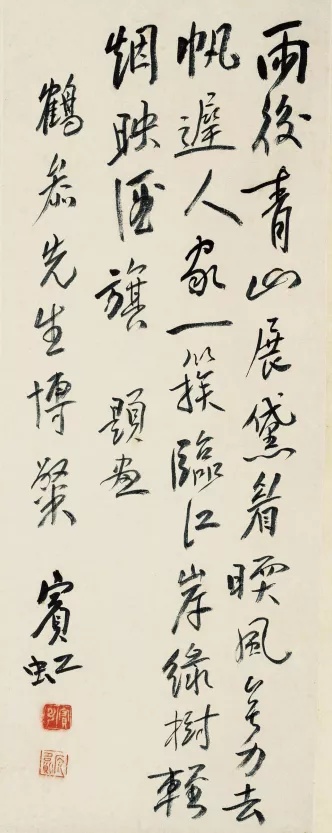 雨後青山展黛眉暖風無力去
帆遲人家一簇臨江岸綠樹輕
烟映酒旗 題畫
鶴 先生博粲 賓虹